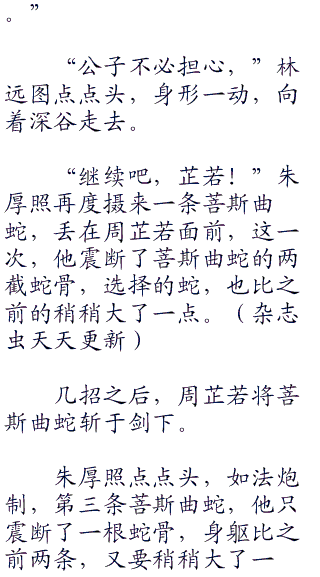 。”
“公子不必担心，”林
远图点点头，身形一动，向
着深谷走去。
“继续吧，芷若！”朱
厚照再度摄来一条菩斯曲
蛇，丢在周芷若面前，这一
次，他震断了菩斯曲蛇的两
截蛇骨，选择的蛇，也比之
前的稍稍大了一点。（杂志
虫天天更新）
几招之后，周芷若将菩
斯曲蛇斩于剑下。
朱厚照点点头，如法炮
制，第三条菩斯曲蛇，他只
震断了一根蛇骨，身躯比之
前两条，又要稍稍大了一